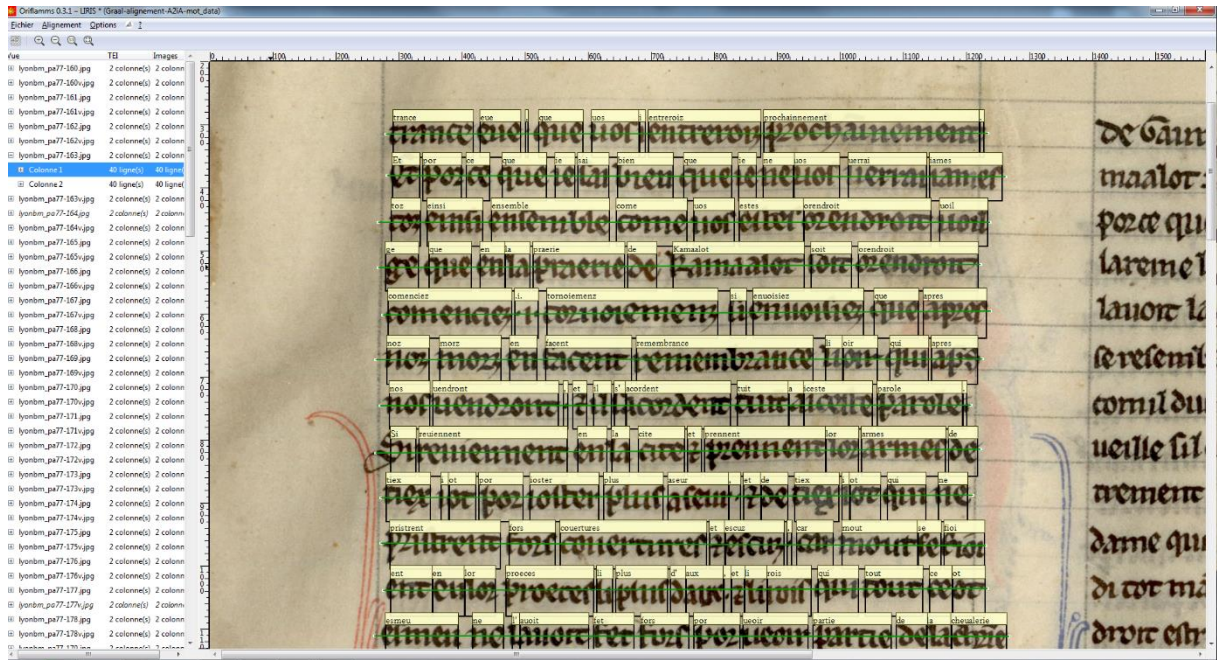 Oriflamms 0.3.1 – LIRIS * (Graal-alignement-A2iA-mot_data)
Fichier Alignement Options ?
Vue TEI Images
lyonbm_pa77-160.jpg 2 colonne(s) 2 colonn
lyonbm_pa77-160v.jpg 2 colonne(s) 2 colonn
lyonbm_pa77-161.jpg 2 colonne(s) 2 colonn
lyonbm_pa77-161v.jpg 2 colonne(s) 2 colonn
lyonbm_pa77-162.jpg 2 colonne(s) 2 colonn
lyonbm_pa77-162v.jpg 2 colonne(s) 2 colonn
lyonbm_pa77-163.jpg 2 colonne(s) 2 colonn
Colonne 1 40 ligne(s) 40 ligne(
Colonne 2 40 ligne(s) 40 ligne(
lyonbm_pa77-163v.jpg 2 colonne(s) 2 colonn
lyonbm_pa77-164.jpg 2 colonne(s) 2 colonn
lyonbm_pa77-164v.jpg 2 colonne(s) 2 colonn
lyonbm_pa77-165.jpg 2 colonne(s) 2 colonn
lyonbm_pa77-165v.jpg 2 colonne(s) 2 colonn
lyonbm_pa77-166.jpg 2 colonne(s) 2 colonn
lyonbm_pa77-166v.jpg 2 colonne(s) 2 colonn
lyonbm_pa77-167.jpg 2 colonne(s) 2 colonn
lyonbm_pa77-167v.jpg 2 colonne(s) 2 colonn
lyonbm_pa77-168.jpg 2 colonne(s) 2 colonn
lyonbm_pa77-168v.jpg 2 colonne(s) 2 colonn
lyonbm_pa77-169.jpg 2 colonne(s) 2 colonn
lyonbm_pa77-169v.jpg 2 colonne(s) 2 colonn
lyonbm_pa77-170.jpg 2 colonne(s) 2 colonn
lyonbm_pa77-170v.jpg 2 colonne(s) 2 colonn
lyonbm_pa77-171.jpg 2 colonne(s) 2 colonn
lyonbm_pa77-171v.jpg 2 colonne(s) 2 colonn
lyonbm_pa77-172.jpg 2 colonne(s) 2 colonn
lyonbm_pa77-172v.jpg 2 colonne(s) 2 colonn
lyonbm_pa77-173.jpg 2 colonne(s) 2 colonn
lyonbm_pa77-173v.jpg 2 colonne(s) 2 colonn
lyonbm_pa77-174.jpg 2 colonne(s) 2 colonn
lyonbm_pa77-174v.jpg 2 colonne(s) 2 colonn
lyonbm_pa77-175.jpg 2 colonne(s) 2 colonn
lyonbm_pa77-175v.jpg 2 colonne(s) 2 colonn
lyonbm_pa77-176.jpg 2 colonne(s) 2 colonn
lyonbm_pa77-176v.jpg 2 colonne(s) 2 colonn
lyonbm_pa77-177.jpg 2 colonne(s) 2 colonn
lyonbm_pa77-177v.jpg 2 colonne(s) 2 colonn
lyonbm_pa77-178.jpg 2 colonne(s) 2 colonn
lyonbm_pa77-178v.jpg 2 colonne(s) 2 colonn
0 100 200 300 400 500 600 700 800 900 1000 1100 1200 1300 1400 1500
trance eue que uos entreroiz prochainnement
Et por ce que ie sai bien que ie ne uos uerrai iames
toz einsi ensemble come uos estes orendroit uoil
ge que en la praerie de Kamaalot soit orendroit
comenciez .i. tornoiemenz si enuoisiez que apres
noz morz en facent remembrance li oir qui apres
nos uendront . et il s' acordent tuit a ceste parole .
Si reuiennent en la cite et prennent lor armes de
tiex i ot por ioster plus aseur . et de tiex i ot qui ne
pristrent fors couertures et escuz . car mout se fioi
ent en lor proeces li plus d' aux . et li rois qui tout ce ot
esmeu ne l' auoit fet fors por ueoir partie de la cheualerie
de Gaun
maalot
porce que
lareine l
lauoit la
se resenbl
com il du
ueille sil
trement
dame qui
di tot ma
droit estr